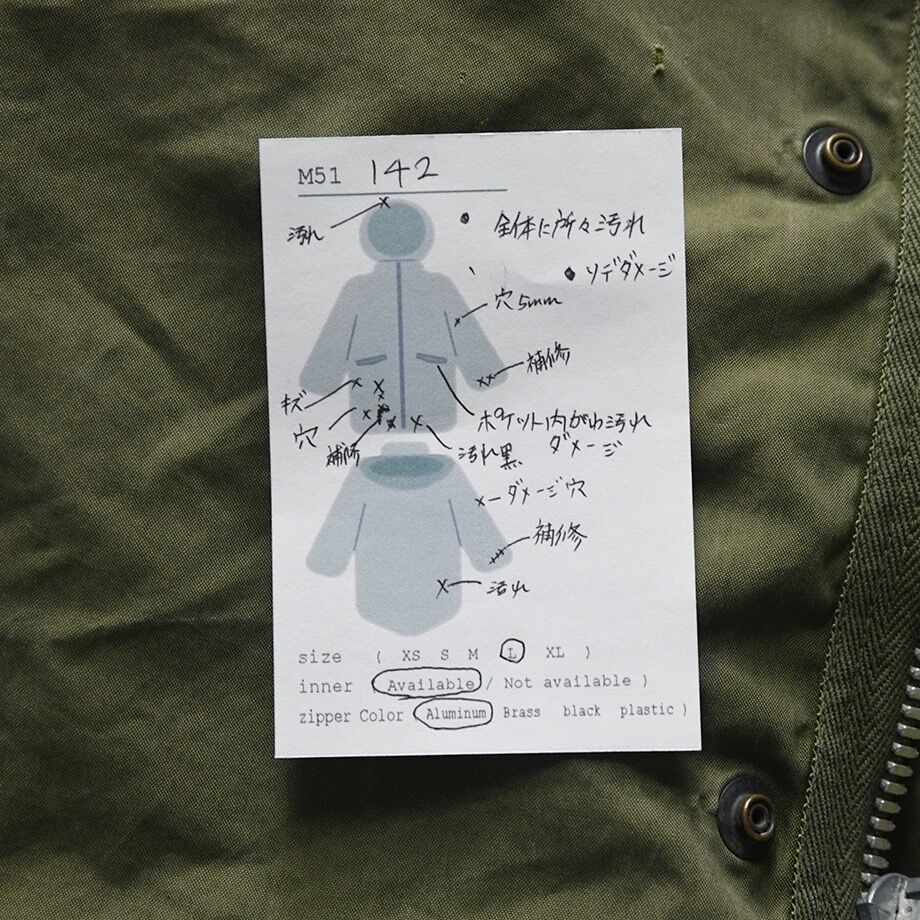 M51 142
汚れ
全体に所々汚れ
ソデダメージ
穴5mm
補修
キズ
ポケット内がわ汚れ
ダメージ
穴
補修
汚れ黒
ダメージ穴
補修
汚れ
size ( XS S M L XL )
inner ( Available / Not available )
zipper Color ( Aluminum Brass black plastic )